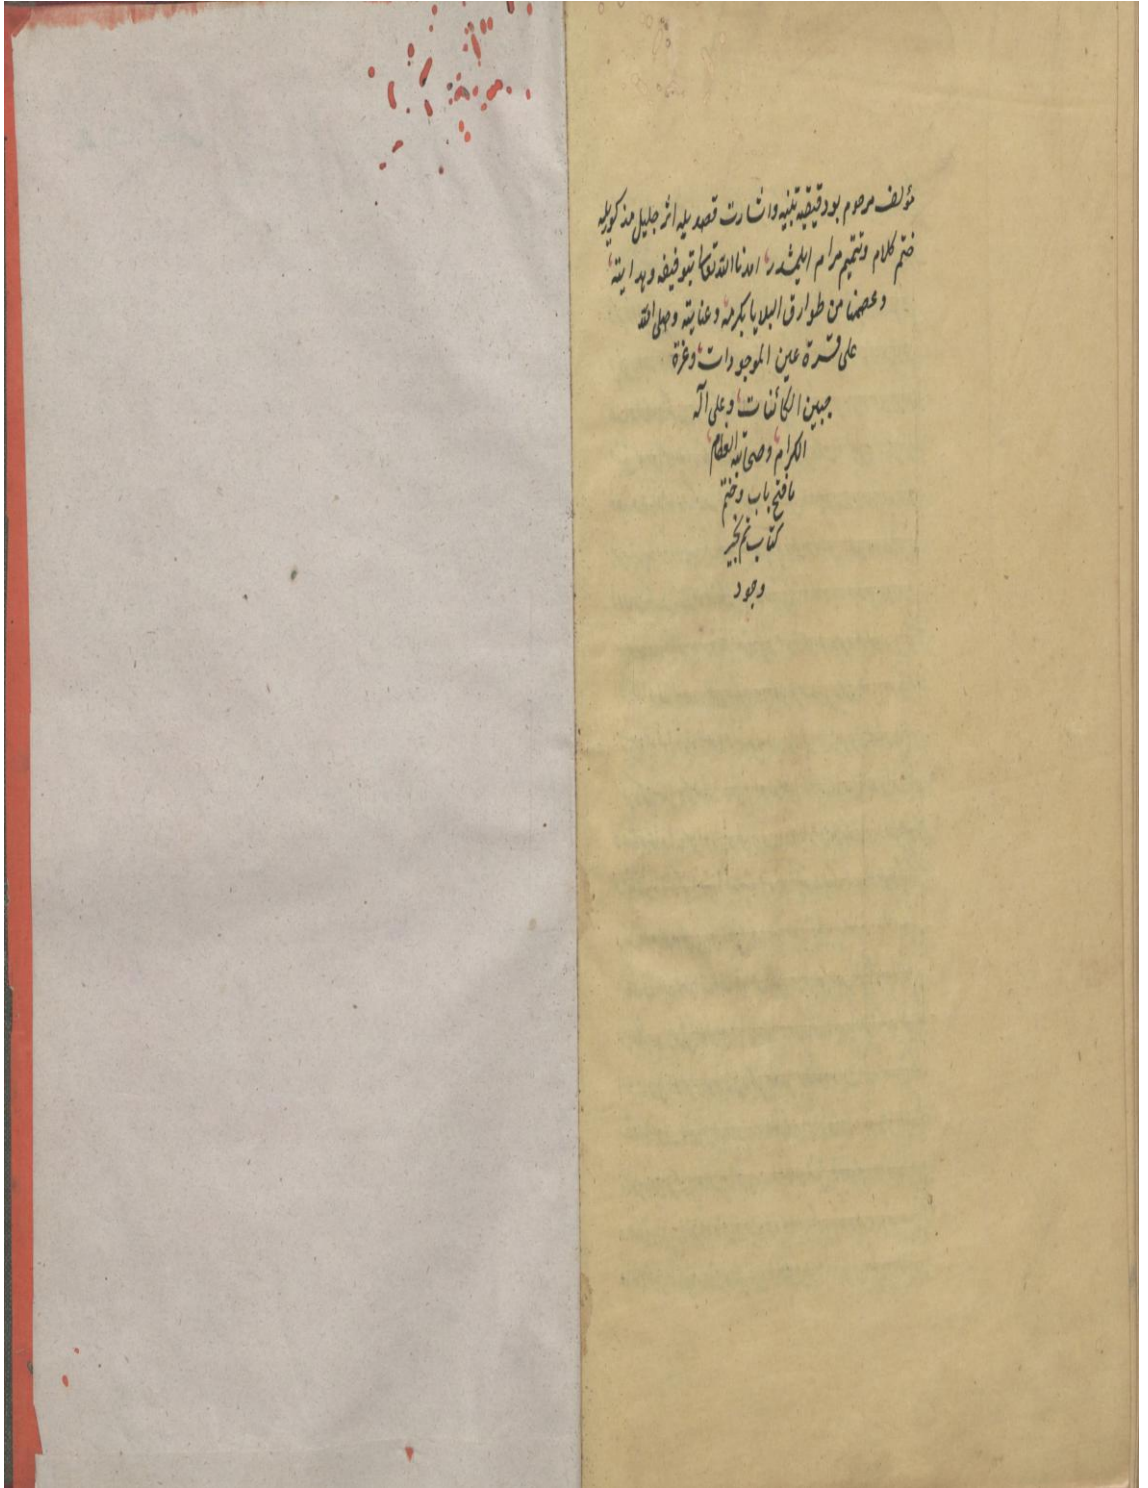 مؤلف مرحوم بو دقيقه يه تنبيه واشارت قصديله اثر جليل مذكوريله
ختم كلام وتتميم مرام ايلمشدر امدنا الله تعالى بتوفيقه وهدايته
وعصمنا من طوارق البلايا بكرمه وعنايته وصلى الله
على قرة عين الموجودات وغرة
جبين الكائنات وعلى آله
الكرام وصحابته العظام
ما فتح باب وختم
كتاب تم بخير
وجود